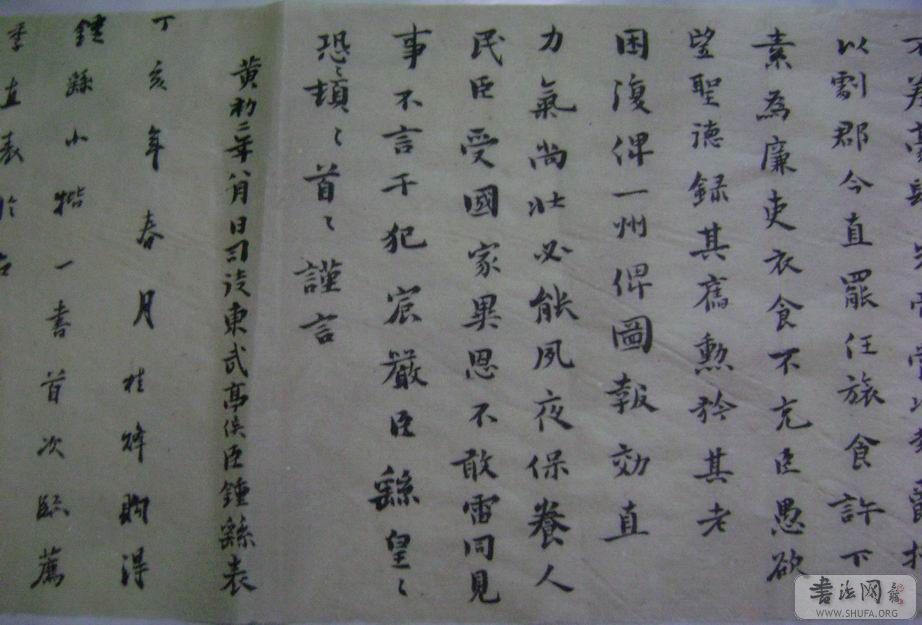 以劇郡今直罷任旅食許下
素為廉吏衣食不充臣愚欲
望聖德録其舊勲矜其老
困復俾一州俾圖報効直
力氣尚壯必能夙夜保養人
民臣受國家異恩不敢雷同見
事不言干犯宸嚴臣繇皇〻
恐〻頓〻首〻謹言
黄初二年八月日司徒東武亭侯臣鍾繇表
丁亥年春月桂購得
鍾繇小楷一書首次臨薦
季直表於
书法网
WWW.SHUFA.ORG